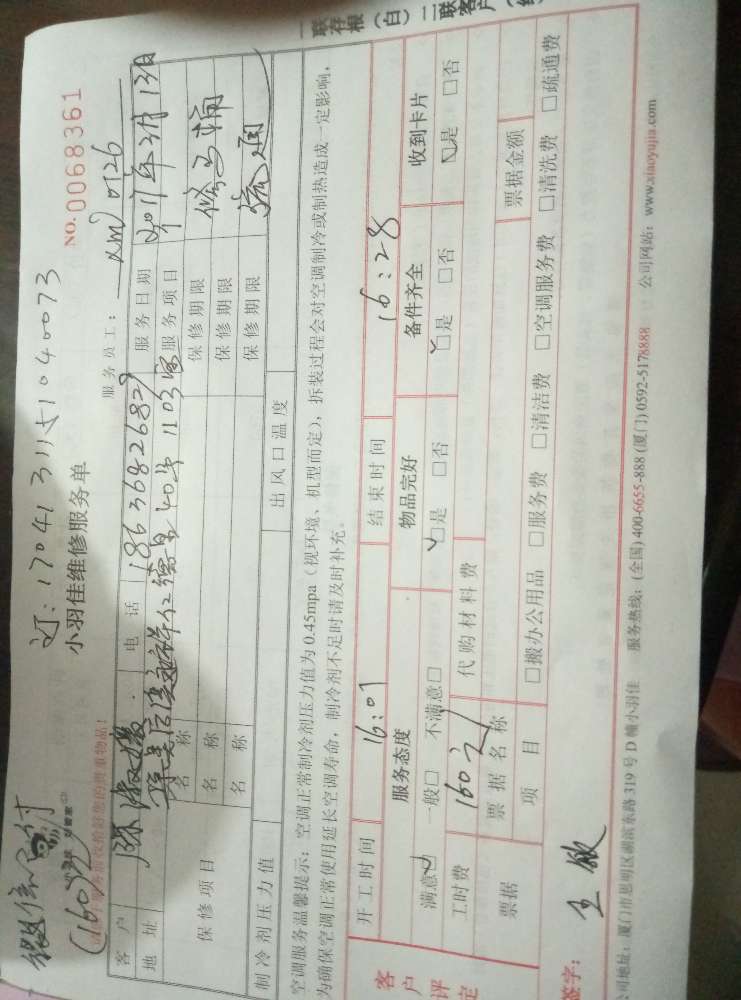 一联存根(白)二联客户(红
微信已付
(160元)
17041311551040073
小羽佳维修服务单
NO. 0068361
服务员工: XM 0126
客户 电话 18636826829 服务日期 2017年2月13日
地址 40号1103室 服务项目
保修项目 名称 保修期限
名称 保修期限
名称 保修期限
疏通
制冷剂压力值 出风口温度
空调服务温馨提示:空调正常制冷剂压力值为0.45mpa(视环境、机型而定),拆装过程会对空调制冷或制热造成一定影响,
为确保空调正常使用延长空调寿命,制冷剂不足时请及时补充。
客户评定
开工时间 16:07 结束时间 16:28
服务态度 物品完好 备件齐全 收到卡片
满意☑ 一般□ 不满意□ ☑是 □否 ☑是 □否 ☑是 □否
工时费 160元 代购材料费
票据 票据名称 票据金额
项目 □搬办公用品 □服务费 □清洁费 □空调服务费 □清洗费 □疏通费
签字:
公司地址:厦门市思明区湖滨东路319号D幢小羽佳 服务热线:(全国)400-6655-888 (厦门)0592-5178888 公司网站:www.xiaoyujia.com